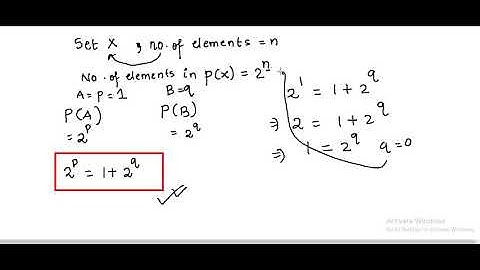 Set X → no. of elements = n
No. of elements in P(X) = 2^n
A = P = 1 B = q
P(A) P(B)
= 2^p = 2^q
2^p = 1 + 2^q
2^1 = 1 + 2^q
⇒ 2 = 1 + 2^q
⇒ 1 = 2^q q = 0
Activate Windows
Go to Settings to activate Windows.